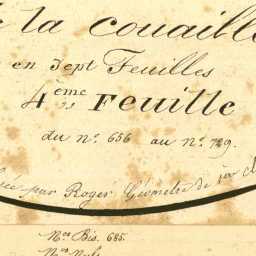 la Couaille
en Sept Feuilles
4ème Feuille
du n°. 656 au n°. 729.
par Roger Géomètre de 1er cl
Nos. Bis. 685.
Nos. Nuls